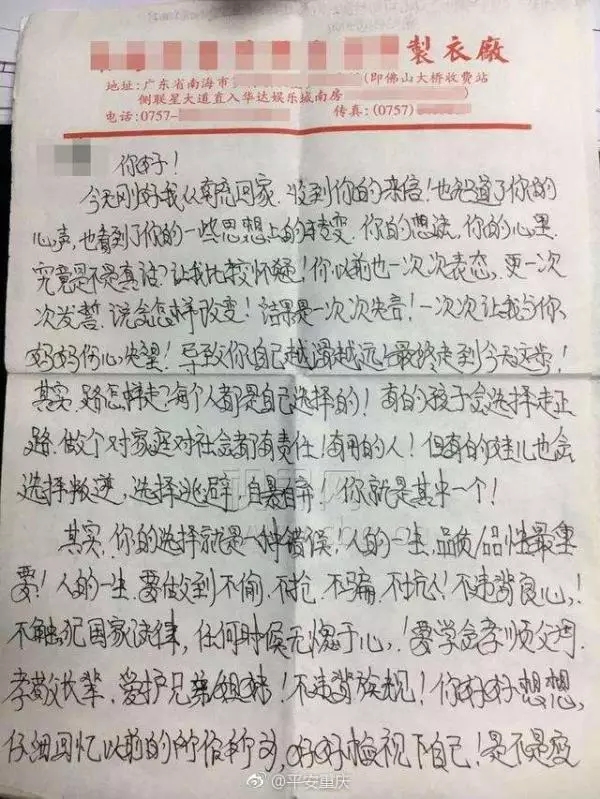 製衣廠
地址:广东省南海市 (即佛山大桥收费站
侧联星大道直入华达娱乐城南房
电话:0757- 传真:(0757)
你好!
今天刚好我从东流回家.收到你的来信!也知道了你的
心声,也看到了你的一些思想上的转变.你的想法.你的心里.
究竟是不是真话?让我比较怀疑!你以前也一次次表态,更一次
次发誓.说会怎样改变!结果是一次次失言!一次次让我与你
妈妈伤心失望!导致你自己越滑越远!最终走到今天这步!
其实.路怎样走?每个人都是自己选择的!有的孩子会选择走正
路.做个对家庭对社会都有责任!有用的人!但有的娃儿也会
选择叛逆,选择逃避,自暴自弃!你就是其中一个!
其实,你的选择就是一种错误,人的一生.品质/品性最重
要!人的一生.要做到不偷.不抢.不骗.不坑人!不违背良心!
不触犯国家法律,任何时候无愧于心!要学会孝顺父母.
孝敬长辈.爱护兄弟姐妹!不违背族规!你好好想想,
仔细回忆以前的所作所为,好好检视下自己!是不是变
@平安重庆